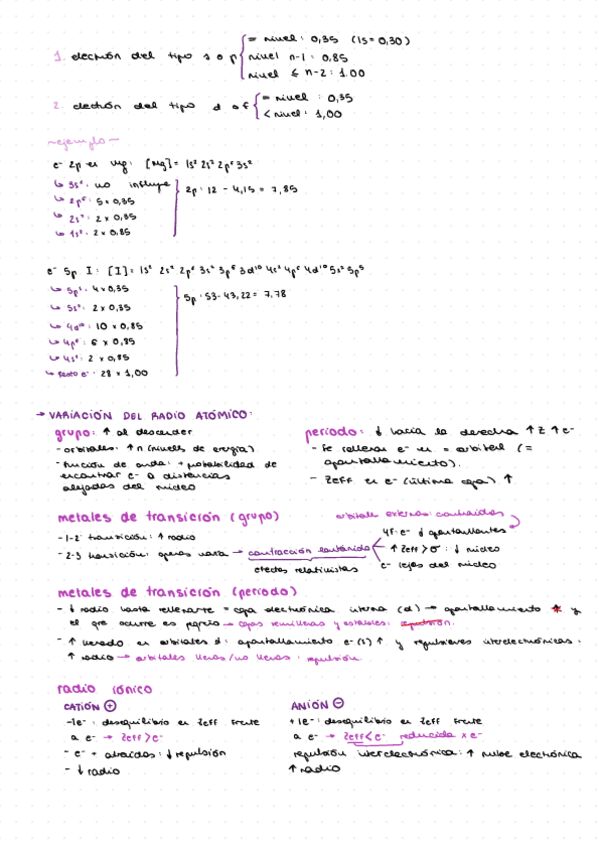 1. electrón del tipo s o p { = nivel: 0,35 (1s = 0,30)
nivel n-1: 0,85
nivel ≤ n-2: 1.00
2. electrón del tipo d o f { = nivel: 0,35
< nivel: 1,00
~ejemplo~
e⁻ 2p en Mg: [Mg] = 1s² 2s² 2p⁶ 3s²
↳ 3s²: no influye
↳ 2p⁶: 5 x 0,35
↳ 2s²: 2 x 0,35
↳ 1s²: 2 x 0.85
2p: 12 - 4,15 = 7,85
e⁻ 5p I: [I] = 1s² 2s² 2p⁶ 3s² 3p⁶ 3d¹⁰ 4s² 4p⁶ 4d¹⁰ 5s² 5p⁵
↳ 5p⁵: 4 x 0,35
↳ 5s²: 2 x 0.35
↳ 4d¹⁰: 10 x 0,85
↳ 4p⁶: 6 x 0,85
↳ 4s²: 2 x 0,85
↳ resto e⁻: 28 x 1,00
5p: 53 - 43,22 = 7.78
→ VARIACIÓN DEL RADIO ATÓMICO:
grupo: ↑ al descender
- orbitales: ↑ n (niveles de energía)
- función de onda: + probabilidad de
encontrar e⁻ a distancias
alejadas del núcleo
período: ↓ hacia la derecha ↑ Z ↑ e⁻
- Se rellenan e⁻ en = orbital (=
apantallamiento).
- Zeff en e⁻ (última capa) ↑
metales de transición (grupo)
orbitales externos: contraídos
- 1-2 transición: ↑ radio
- 2-3 transición: apenas varía → contracción lantánida
efectos relativistas
4f: e⁻ ↓ apantallantes
↑ Zeff > σ: ↓ núcleo
e⁻ lejos del núcleo
metales de transición (período)
- ↓ radio hasta rellenarse = capa electrónica interna (d) → apantallamiento ↑ y
el que ocurre es pequeño → capas semillenas y estables: repulsión.
- ↑ llenado en orbitales d: apantallamiento e⁻ (s) ↑ y repulsiones interelectrónicas.
↑ radio → orbitales llenos/no llenos: repulsión.
radio iónico
CATIÓN ⊕
-1e⁻: desequilibrio en Zeff frente
a e⁻ → Zeff > e⁻
- e⁻ + atraídos: ↓ repulsión
- ↓ radio
ANIÓN ⊖
+1e⁻: desequilibrio en Zeff frente
a e⁻ → Zeff < e⁻ reducida x e⁻
repulsión interelectrónica: ↑ nube electrónica
↑ radio